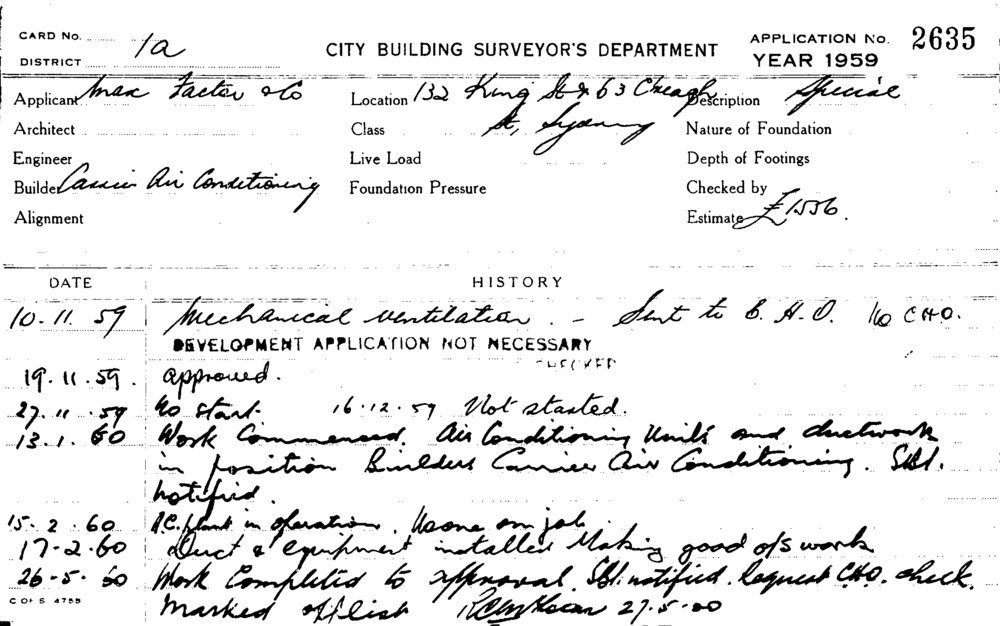 CARD No. 1a
CITY BUILDING SURVEYOR'S DEPARTMENT
APPLICATION No. 2635
DISTRICT
YEAR 1959
Applicant Max Factor & Co Location 132 King St & 63 Creagh Description Special
Architect Class St, Sydney Nature of Foundation
Engineer Live Load Depth of Footings
Builder Carrier Air Conditioning Foundation Pressure Checked by
Alignment Estimate £1556.
DATE HISTORY
10.11.59 Mechanical ventilation. - Sent to C.H.O. C.H.O.
DEVELOPMENT APPLICATION NOT NECESSARY
CHECKED
19.11.59. approved.
27.11.59 No start. 16.12.59 Not started.
13.1.60 Work Commenced. Air Conditioning Units and ductwork
in position Builders Carrier Air Conditioning. SBI.
notified.
15-2-60 A.C. plant in operation. No one on job
17-2-60 Duct & equipment installed Making good o/s work
26-5-60 Work Completed to approval. SBI. notified. Request C.H.O. check.
C OF S 4755
Marked off list 27-5-60